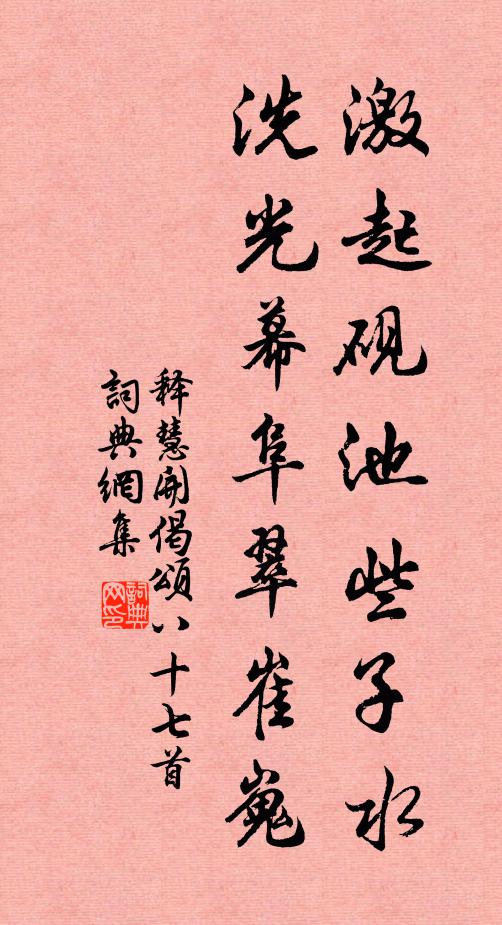 激起硯池些子水
洗光幕阜翠崔嵬
释慧開偈頌八十七首
詞典網集
詞典网印